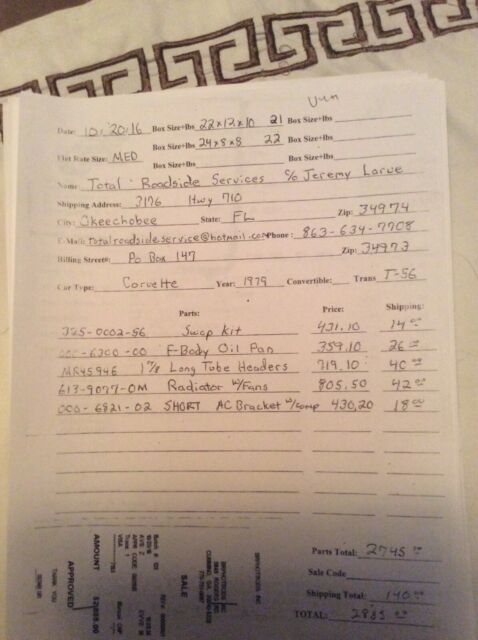 Date: 10/20/16 Box Size+lbs 22x12x10 21 Box Size+lbs
Box Size+lbs 24x8x8 22 Box Size+lbs
Flat Rate Size: MED Box Size+lbs Box Size+lbs
Name: Total Roadside Services c/o Jeremy Larue
Shipping Address: 3176 Hwy 710
City: Okeechobee State: FL Zip: 34974
E-Mail: totalroadsideservice@hotmail.com Phone: 863-634-7708
Billing Street#: Po Box 147 Zip: 34973
Car Type: Corvette Year: 1979 Convertible: Trans T-56
Parts: Price: Shipping:
325-0002-56 Swap Kit 431.10 14 00
000-6200-00 F-Body Oil Pan 359.10 26 00
1 7/8 Long Tube Headers 719.10 40 00
613-9077-OM Radiator w/Fans 805.50 42 00
000-6821-02 SHORT AC Bracket w/comp 430.20 18 00
Parts Total: 2745 00
Sale Code
Shipping Total: 140 00
TOTAL: 2885 00
SALE
VISA
AMOUNT $2885.00
APPROVED
THANK YOU